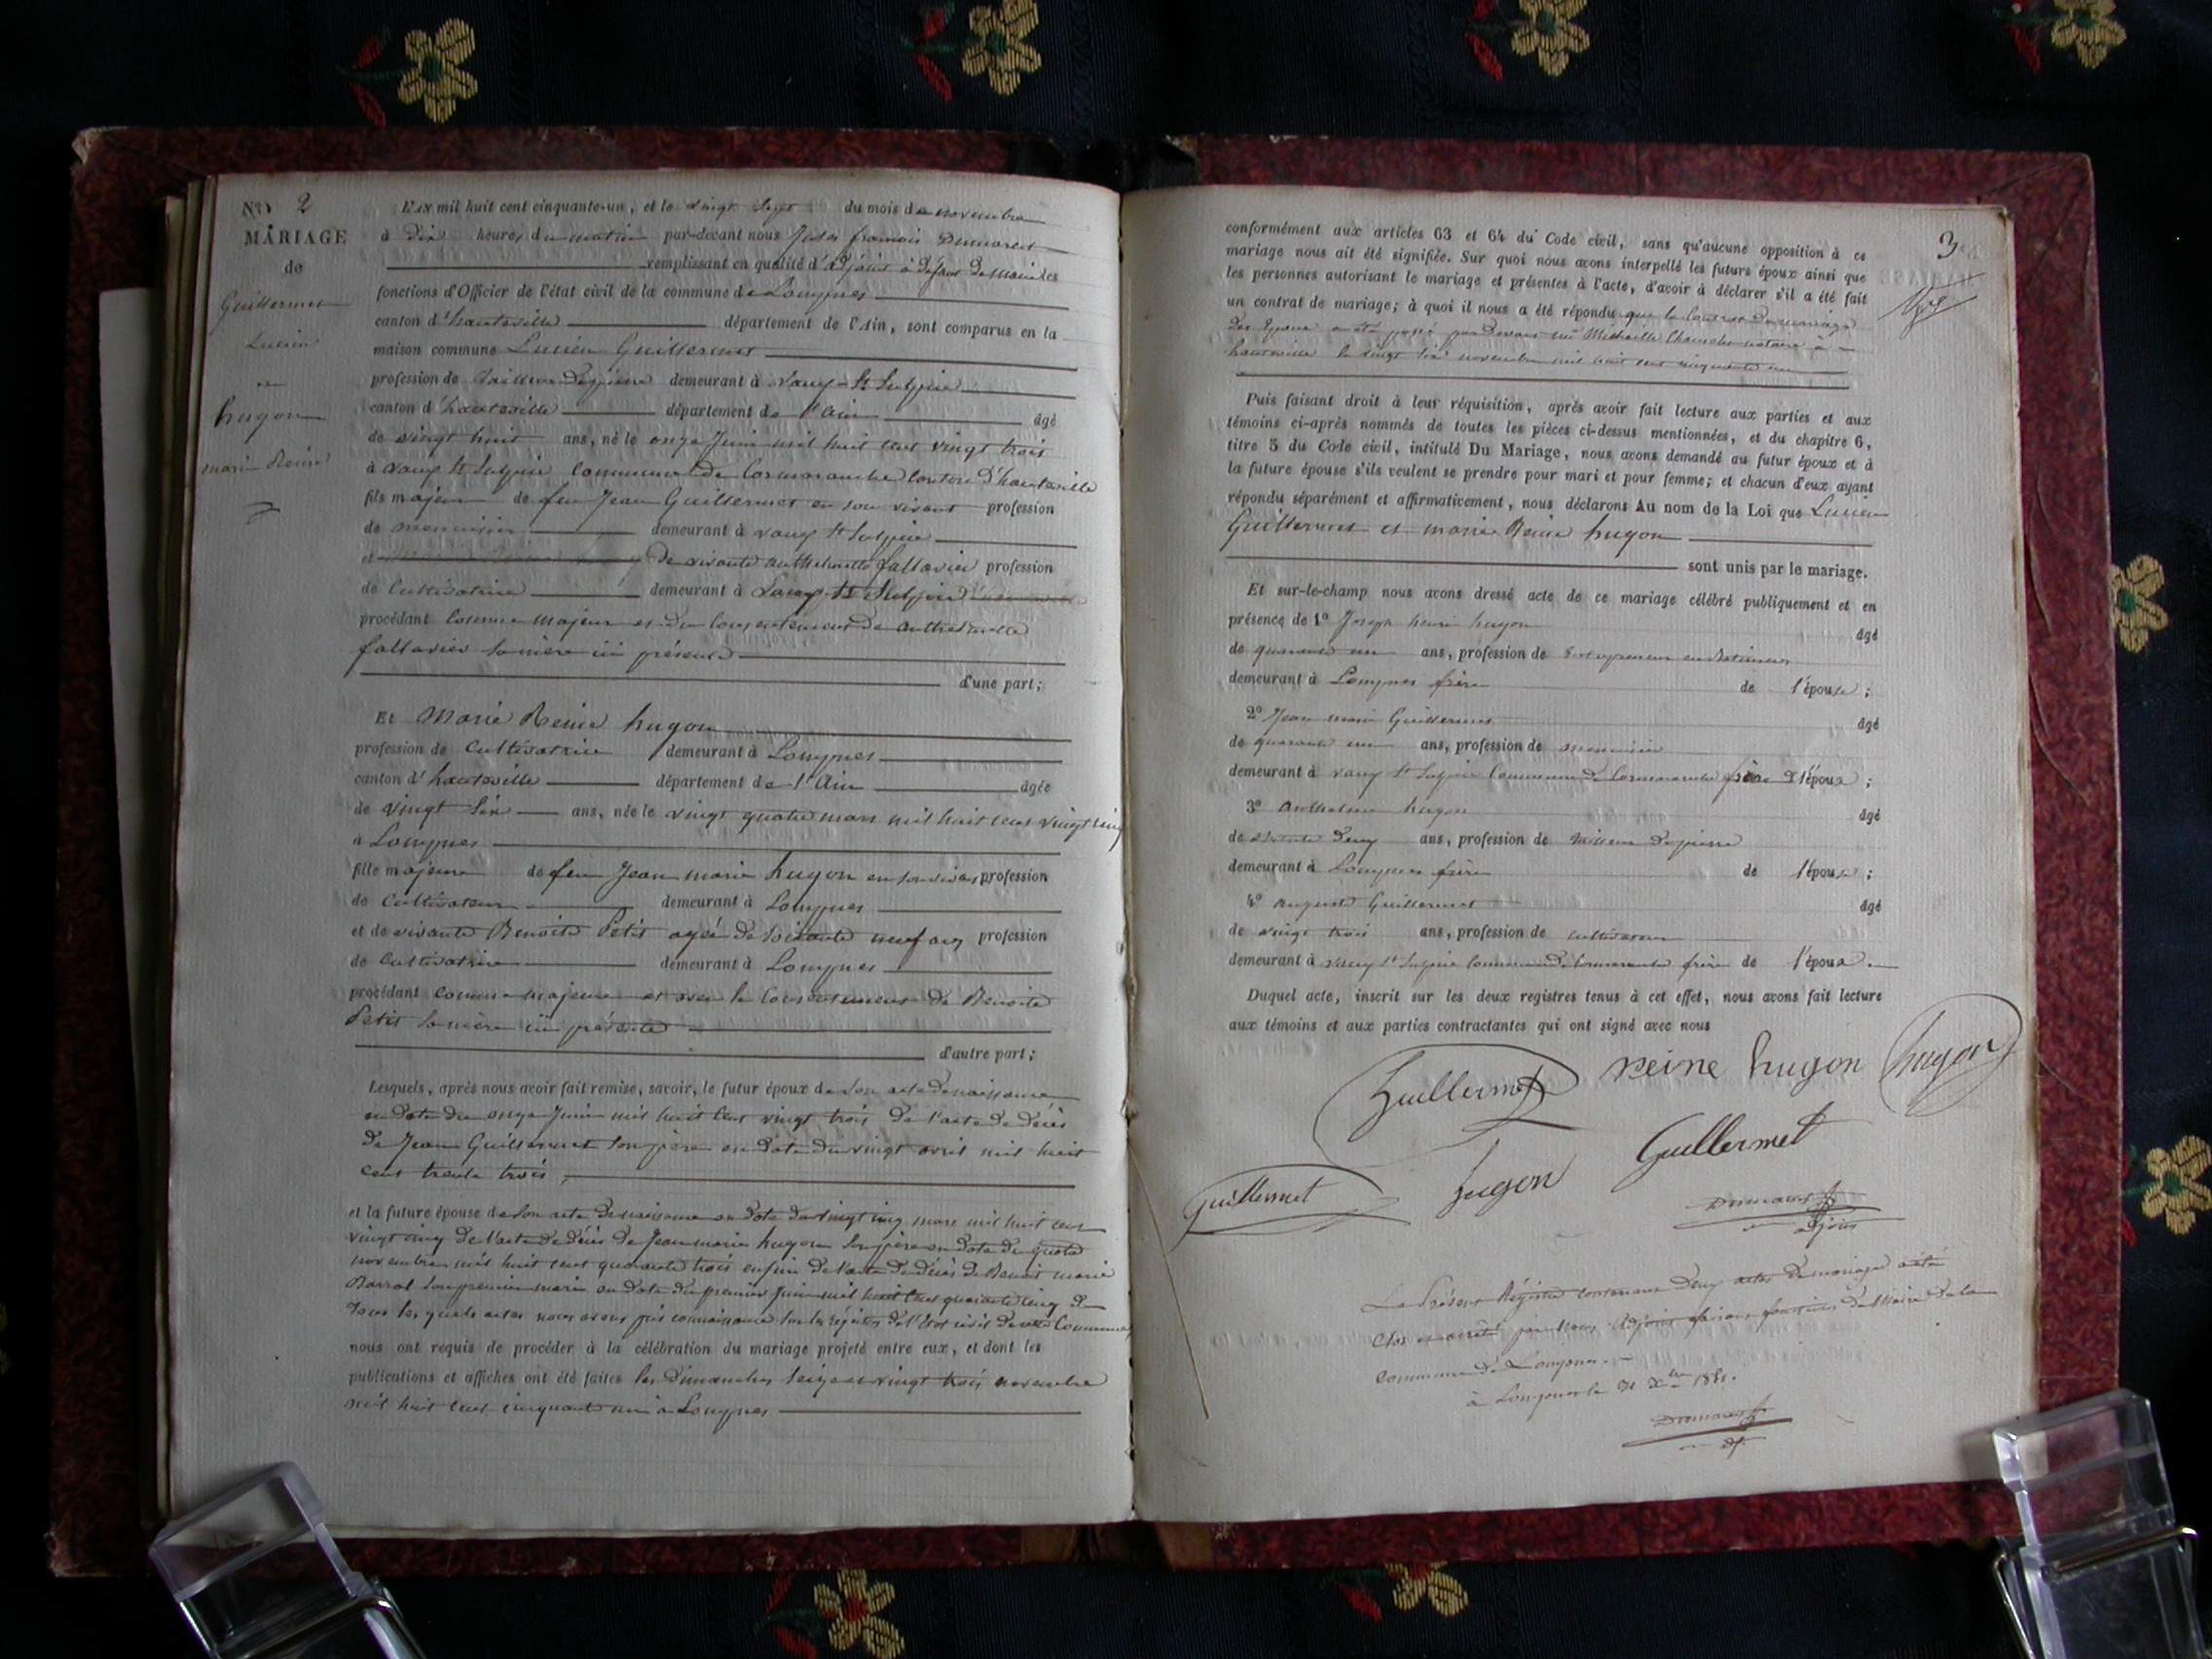 No 2
MARIAGE
de
Guillermet
Lucien
et
hugon
marie Reine
L'AN mil huit cent cinquante-un, et le vingt Sept du mois de novembre
à Dix heures du matin par-devant nous Jules françois
remplissant en qualité d'adjoint à défaut de Maire les
fonctions d'Officier de l'état civil de la commune de Lompnes
canton d'hauteville département de l'Ain, sont comparus en la
maison commune Lucien Guillermet
profession de Tailleur de pierre demeurant à Vaux-St Sulpice
canton d'hauteville département de l'Ain âgé
de vingt huit ans, né le onze Juin mil huit cent vingt trois
à vaux St Sulpice Commune de Cormaranche Canton d'hauteville
fils majeur de feu Jean Guillermet en son vivant profession
de menuisier demeurant à vaux St Sulpice
et de vivante anthelmette fallavier profession
de Cultivatrice demeurant à Vaux St Sulpice
procédant comme majeur et du consentement de anthelmette
fallavier sa mère ici présente
d'une part;
Et Marie Reine hugon
profession de Cultivatrice demeurant à Lompnes
canton d'hauteville département de l'Ain âgée
de vingt Six ans, née le vingt quatre mars mil huit cent vingt cinq
à Lompnes
fille majeure de feu Jean marie hugon en son vivant profession
de Cultivateur demeurant à Lompnes
et de vivante Benoite Petit agée de soixante neuf ans profession
de Cultivatrice demeurant à Lompnes
procédant comme majeure et avec le Consentement de Benoite
Petit sa mère ici présente
d'autre part;
Lesquels, après nous avoir fait remise, savoir, le futur époux de son acte de naissance
en date du onze Juin mil huit cent vingt trois de l'acte de décès
de Jean Guillermet son père en date du vingt avril mil huit
cent trente trois,
et la future épouse de son acte de naissance en date du vingt cinq mars mil huit cent
vingt cinq de l'acte de décès de Jean marie hugon son père en date du quatre
novembre mil huit cent quarante trois enfin de l'acte de décès de Benoit marie
Barral son premier mari en date du premier Juin mil huit cent quarante cinq de
Tous les quels actes nous avons pris connaissance sur les régistres de l'Etat civil de cette Commune,
nous ont requis de procéder à la célébration du mariage projeté entre eux, et dont les
publications et affiches ont été faites les Dimanches Seize et vingt trois novembre
mil huit cent cinquante un à Lompnes
3
conformément aux articles 63 et 64 du Code civil, sans qu'aucune opposition à ce
mariage nous ait été signifiée. Sur quoi nous avons interpellé les futurs époux ainsi que
les personnes autorisant le mariage et présentes à l'acte, d'avoir à déclarer s'il a été fait
un contrat de mariage; à quoi il nous a été répondu que le Contrat de mariage
des Epoux a été passé par devant me notaire à
hauteville le vingt Six novembre mil huit cent cinquante un
Puis faisant droit à leur réquisition, après avoir fait lecture aux parties et aux
témoins ci-après nommés de toutes les pièces ci-dessus mentionnées, et du chapitre 6,
titre 5 du Code civil, intitulé Du Mariage, nous avons demandé au futur époux et à
la future épouse s'ils veulent se prendre pour mari et pour femme; et chacun d'eux ayant
répondu séparément et affirmativement, nous déclarons Au nom de la Loi que Lucien
Guillermet et marie Reine hugon
sont unis par le mariage.
Et sur-le-champ nous avons dressé acte de ce mariage célébré publiquement et en
présence de 1o Joseph henri hugon âgé
de quarante un ans, profession de Entrepreneur en Batiments
demeurant à Lompnes frère de l'épouse;
2o Jean marie Guillermet âgé
de quarante un ans, profession de menuisier
demeurant à vaux St Sulpice Commune de Cormaranche frère de l'époux;
3o anthelme hugon âgé
de trente deux ans, profession de Tailleur de pierre
demeurant à Lompnes frère de l'épouse;
4o auguste Guillermet âgé
de vingt trois ans, profession de cultivateur
demeurant à vaux St Sulpice Commune de Cormaranche frère de l'époux.
Duquel acte, inscrit sur les deux registres tenus à cet effet, nous avons fait lecture
aux témoins et aux parties contractantes qui ont signé avec nous
Guillermet reine hugon hugon
Guillermet hugon Guillermet
adjoint
Le Présent Régistre contenant deux actes de mariage a été
Clos et arrêté par Nous Adjoint faisant fonctions de Maire de la
Commune de Lompnes
à Lompnes le 31 Xbre 1851.